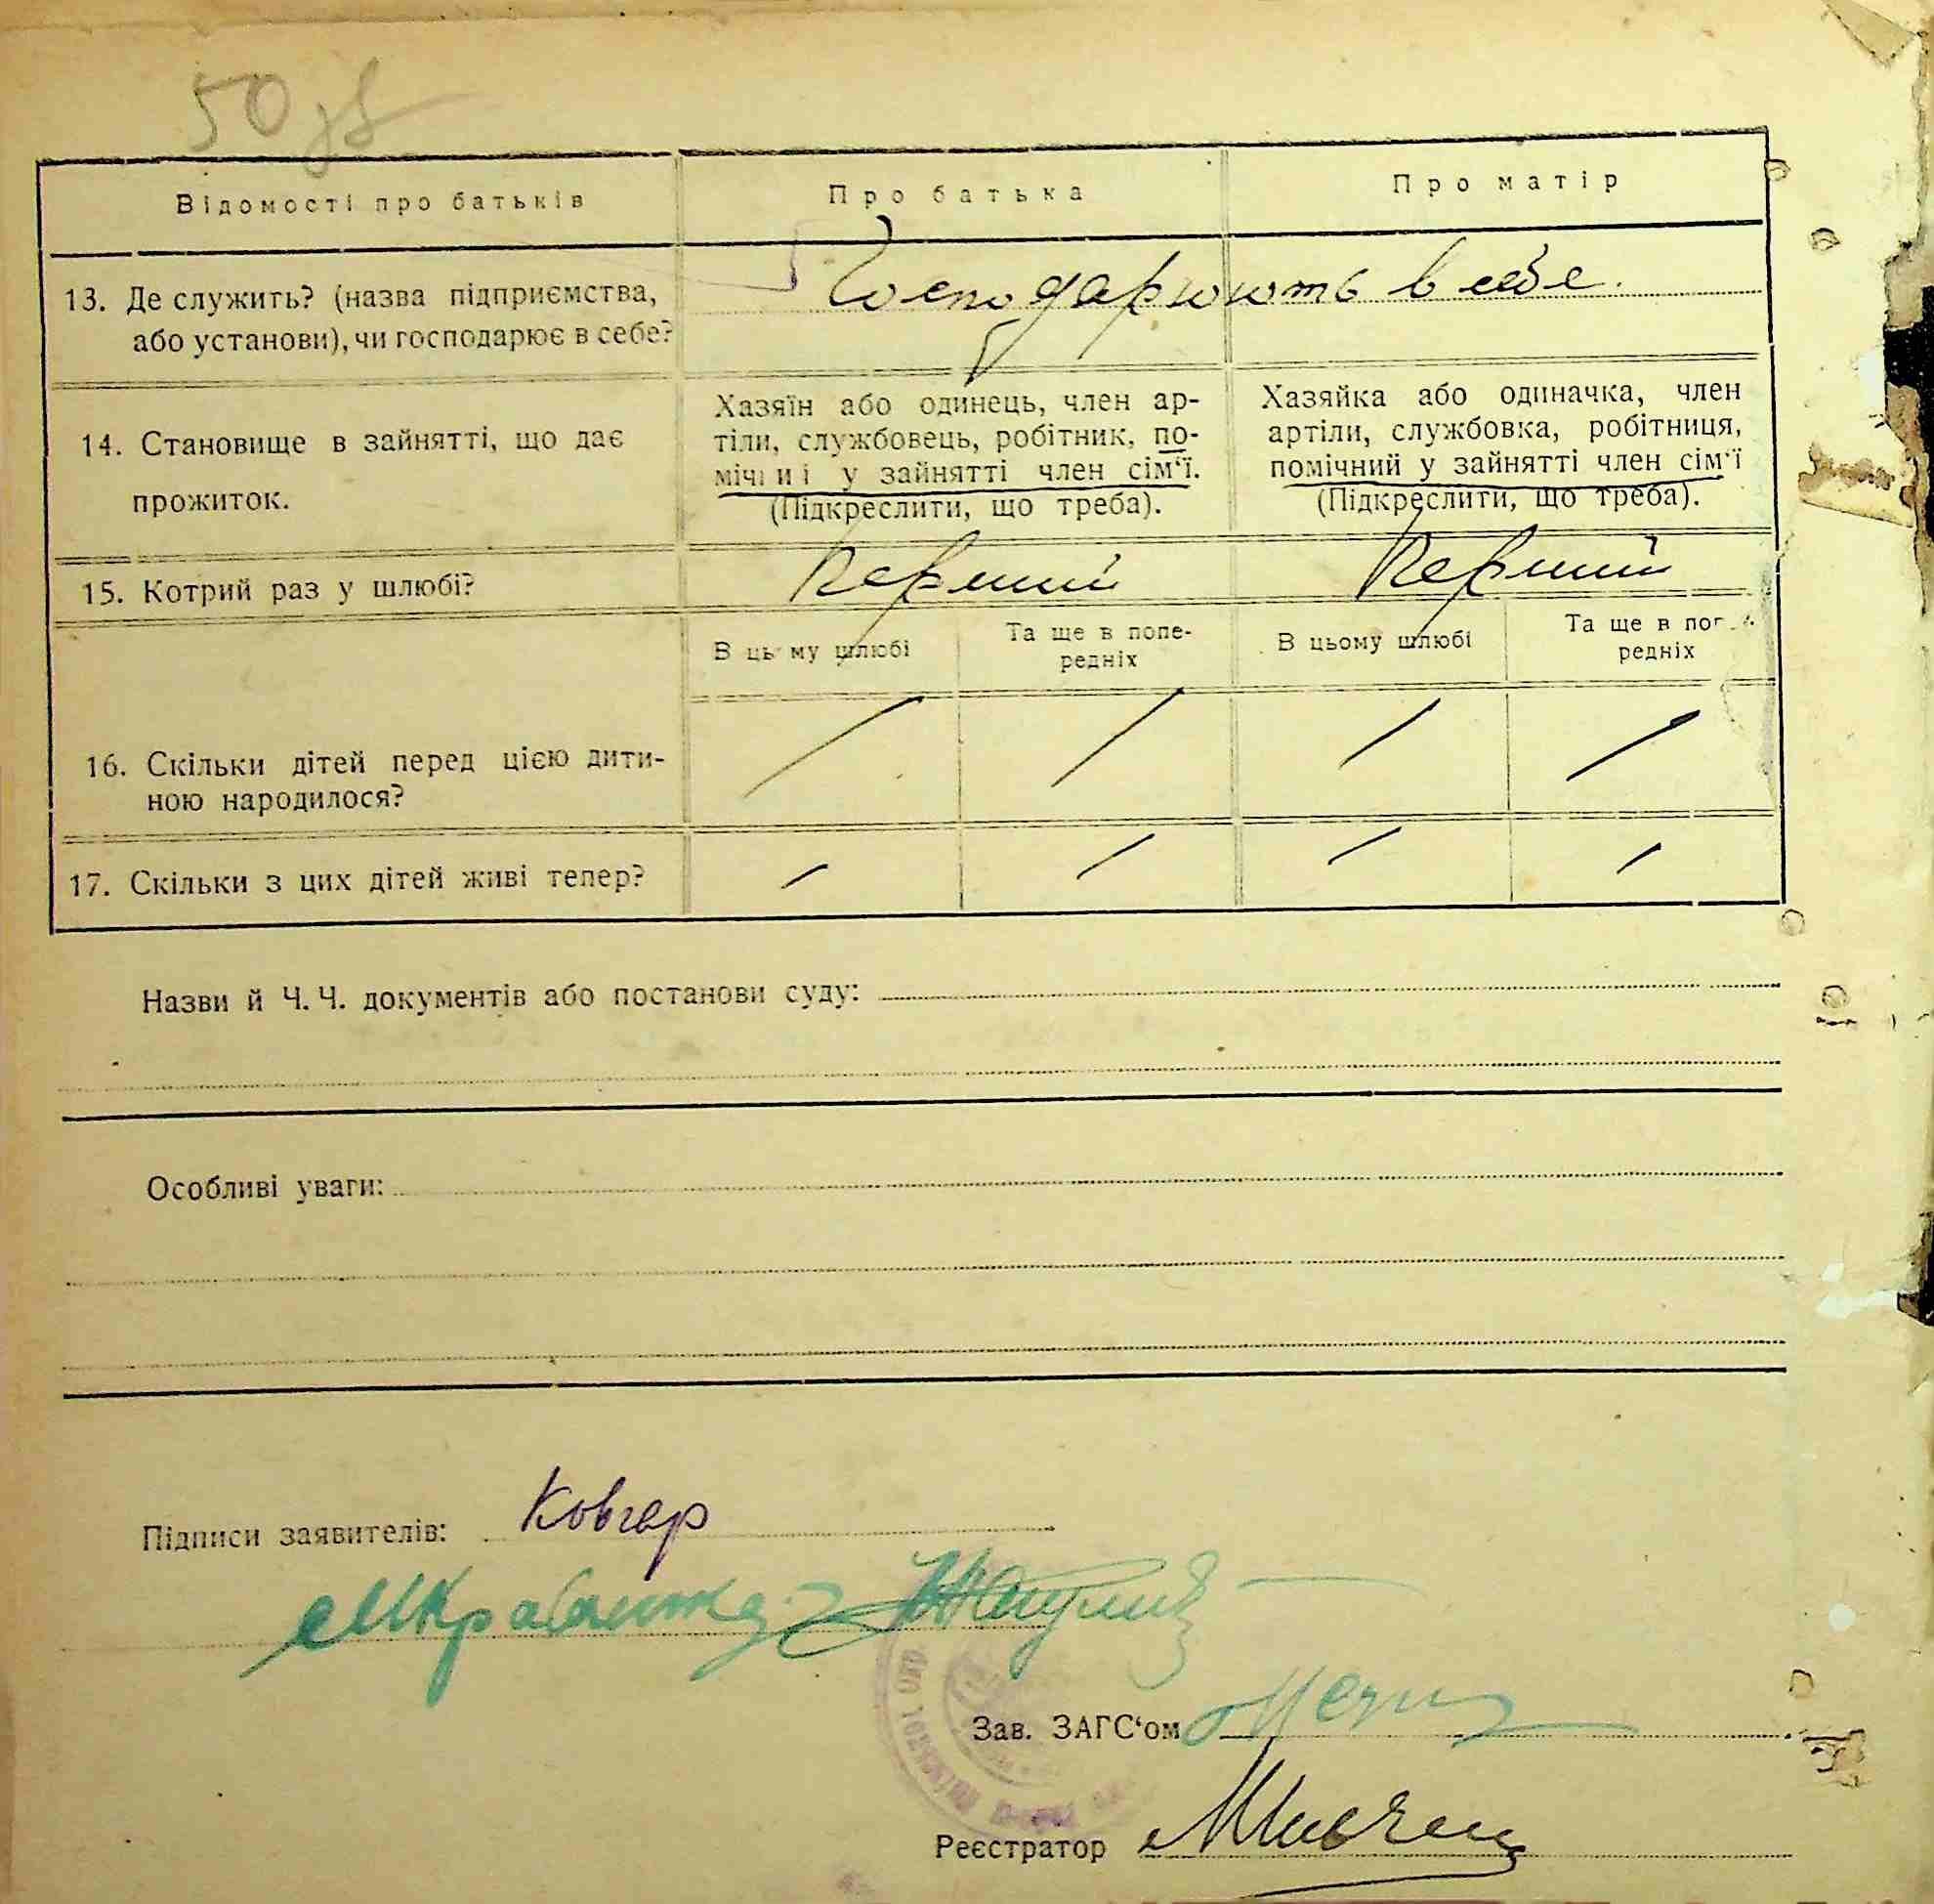 50 зв
Відомості про батьків
Про батька
Про матір
13. Де служить? (назва підприємства,
або установи), чи господарює в себе?
Господарюють в себе.
14. Становище в зайнятті, що дає
прожиток.
Хазяїн або одинець, член ар-
тіли, службовець, робітник, по-
мічний у зайнятті член сім'ї.
(Підкреслити, що треба).
Хазяйка або одиначка, член
артіли, службовка, робітниця,
помічний у зайнятті член сім'ї
(Підкреслити, що треба).
15. Котрий раз у шлюбі?
Перший
Перший
В цьому шлюбі
Та ще в попе-
редніх
В цьому шлюбі
Та ще в попе-
редніх
16. Скільки дітей перед цією дити-
ною народилося?
17. Скільки з цих дітей живі тепер?
Назви й Ч. Ч. документів або постанови суду:
Особливі уваги:
Підписи заявителів: Ковгар
Зав. ЗАГС'ом
Реєстратор